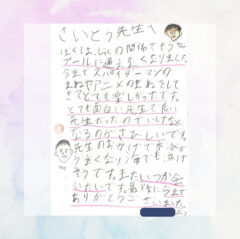 さいとう先生へ
ぼくはじゅくの関係でもう
プールに通えなくなりました。
今までスパイダーマンの
まねやアニメのまねをして
きてとても楽しかったです。
とても面白い先生で良い
先生だったのでいけなく
なるのがさびしいです。
先生のおかげで
うまくなり海でも
そうです。またいつか会
いたいです。最後に今まで
ありがとうございました。
より